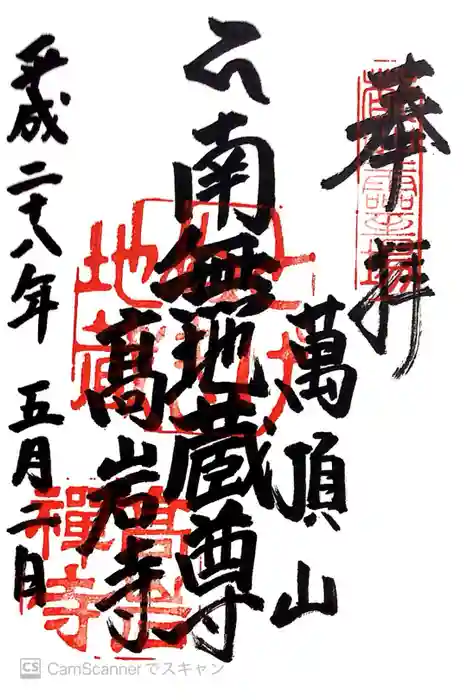 奉拝
萬頂山
南無地蔵尊
高岩寺
平成二十八年 五月二日
高岩
禅寺
CS CamScannerでスキャン